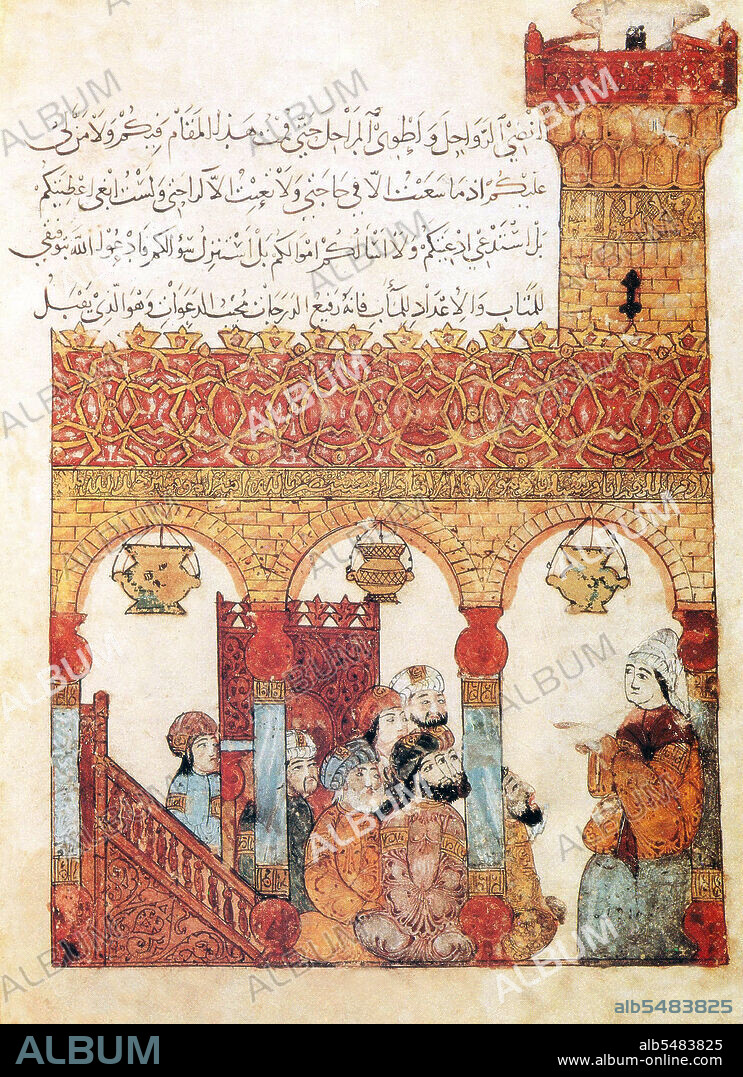 انضي الرَّوَاحِل وَاطوي المَرَاحِل حتى قمت هذا المَقَام فيكُمْ وَلَا مَنَّ لي
عليكم اذ مَا سَعَيْتُ الّا في حَاجَتي وَلَا تعِبْتُ الا لراحَتي ولستُ ابغي اعطِيَتكُم
بَل اسْتَدْعي ادعِيَتكُمْ وَلَا اسْألكُم امْوَالكم بَل اسْتنزل سُؤَالكم وَادعُوا الله بتوفيقي
للمتَاب وَالاعْدَاد للمآب فانهُ رَفيع الدرَجَات مجيبُ الدعوَات وَهوَ الّذي يَقبَل
ALBUM
alb5483825
ALBUM
alb5483825
www.album-online.com